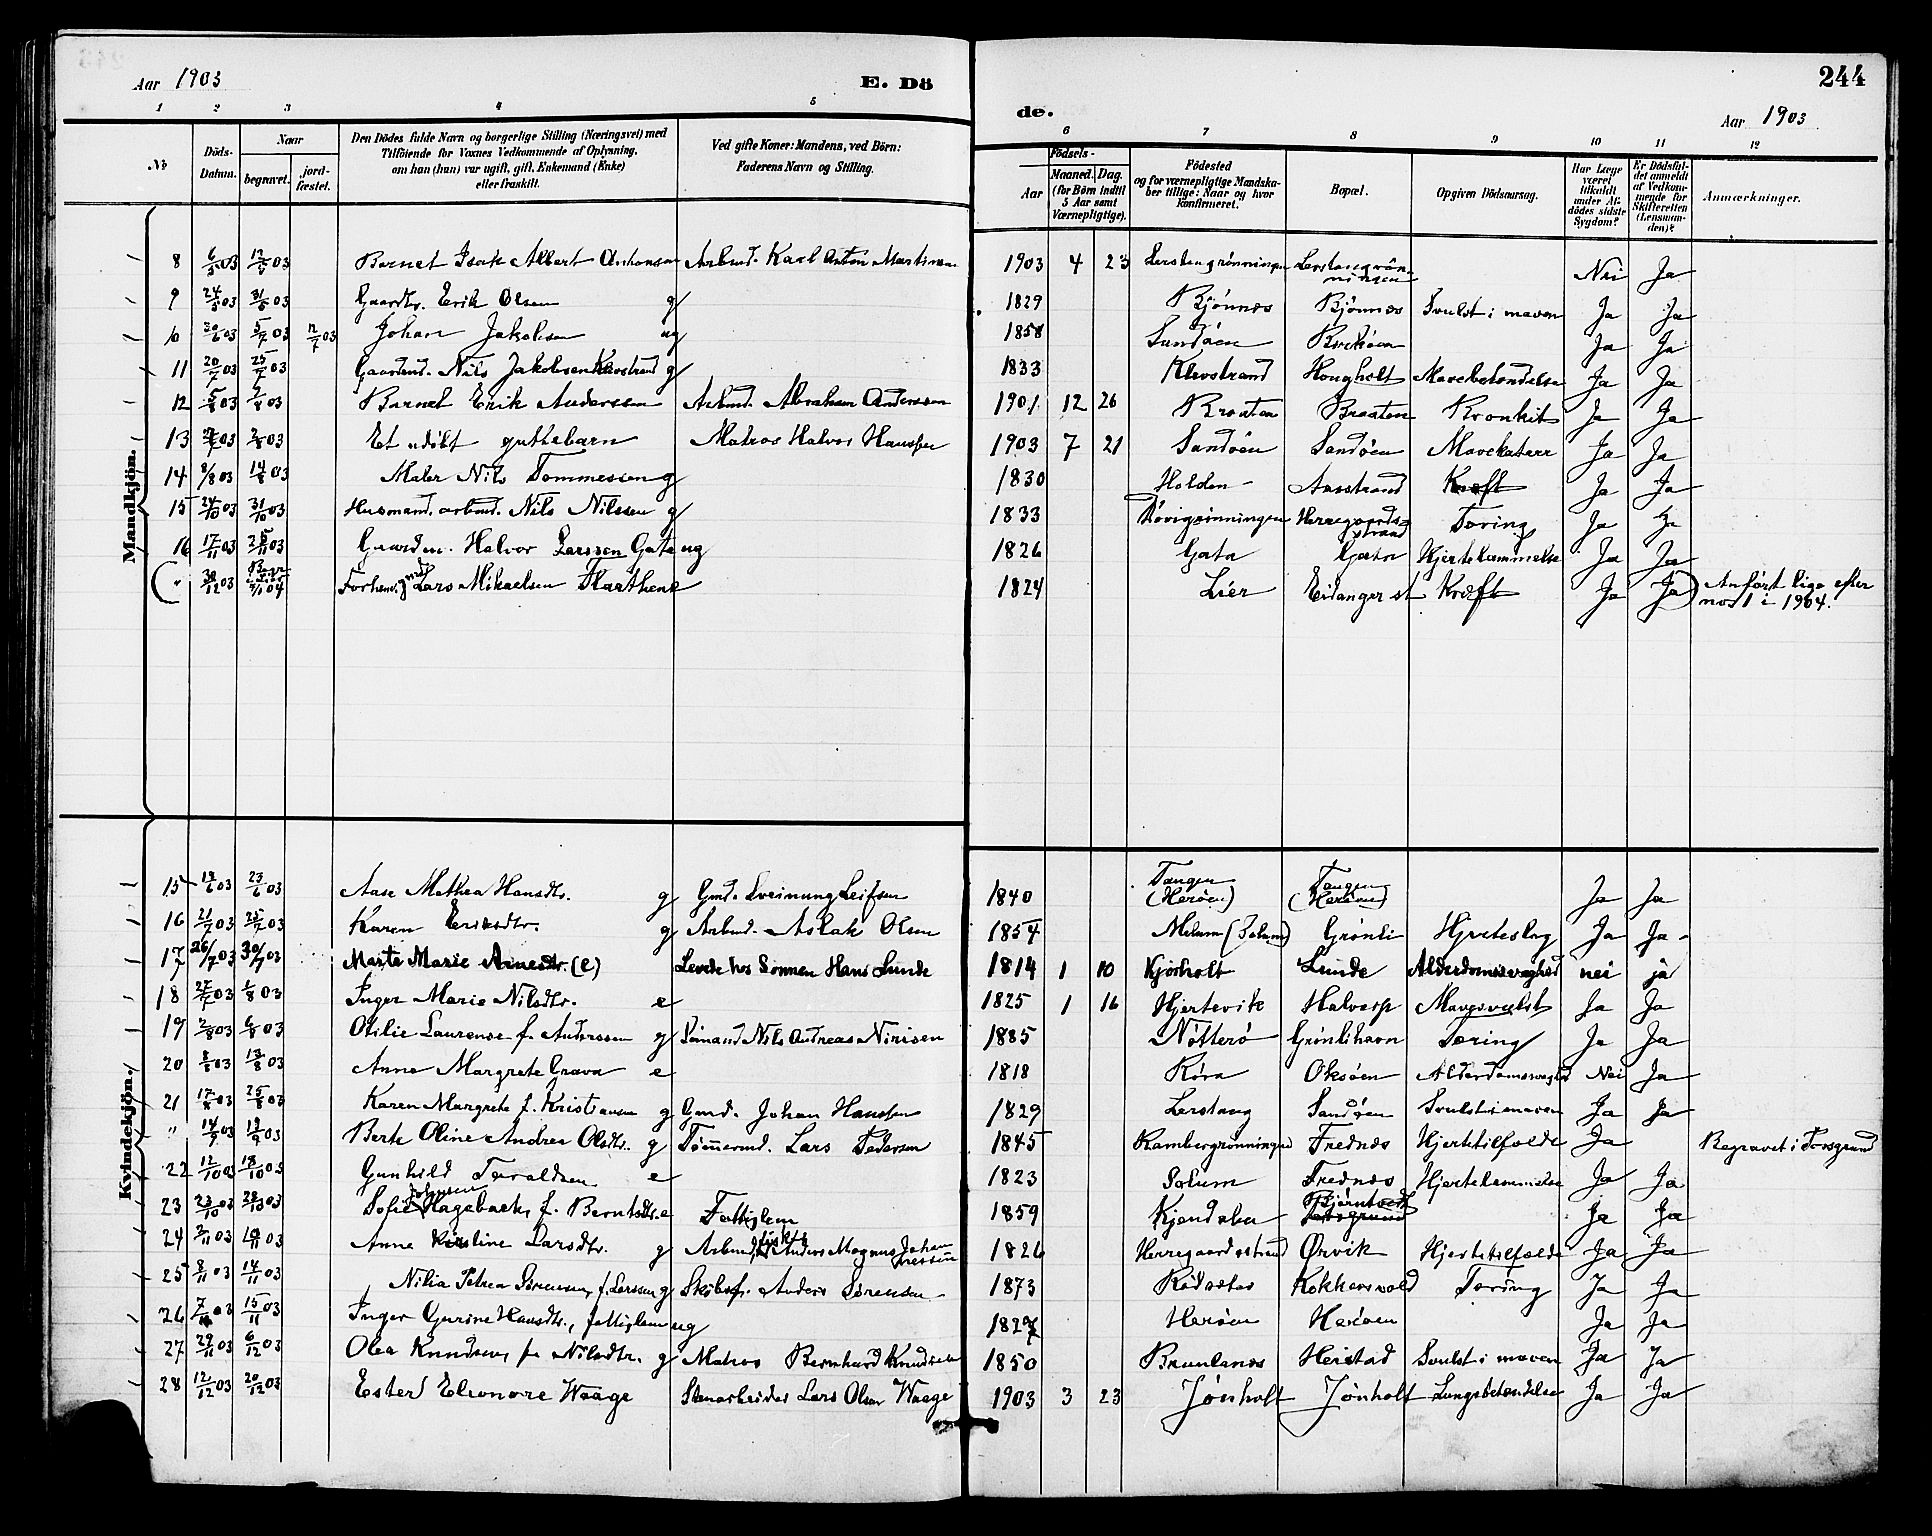 244
Aar 1903
E. Dö
de.
Aar 1903
1 2 3 4 5 6 7 8 9 10 11 12
No
Döds-Datum.
Naar
begravet.
jord-fæstet.
Den Dödes fulde Navn og borgerlige Stilling (Næringsvei) med
Tilföiende for Voxnes Vedkommende af Oplysning,
om han (hun) var ugift, gift, Enkemand (Enke)
eller fraskilt.
Ved gifte Koner: Mandens, ved Börn:
Faderens Navn og Stilling.
Födsels-
Aar
Maaned. Dag.
(for Börn indtil
5 Aar samt
Værnepligtige).
Födested
og for værnepligtige Mandska-
ber tillige: Naar og hvor
konfirmeret.
Bopæl.
Opgiven Dödsaarsag.
Har Læge
været
tilkaldt
under Af-
dödes sidste
Sygdom?
Er Dödsfal-
det anmeldt
af Vedkom-
mende for
Skifteretten
(Lensman-
den)?
Anmærkninger.
Mandkjön.
8 03 03 Barnet Isak Albert Antonsen Arbmd. Karl Anton Martinsen 1903 4 23 Lerstangrønningen Nei Ja
9 24/5 03 31/5 03 Gaardbr. Erik Olsen g 1829 Bjønnes Bjønnes Svulst i maven Ja Ja
10 30/6 03 5/7 03 03 Johan Jakobsen ug 1858 Sandøen Ja Ja
11 20/7 03 25/7 03 Gaardmd. Nils Jakobsen Klevstrand g 1833 Klevstrand Hougholt Mavebetændelse Ja Ja
12 5/8 03 03 Barnet Erik Anderssen Arbmd. Abraham Anderssen 1901 12 26 Braaten Braaten Bronkit Ja Ja
13 03 03 Et udöbt guttebarn Matros Halvor Hanssen 1903 7 21 Sandöen Sandöen Mavekatarr Ja Ja
14 8/8 03 14/8 03 Maler Nils Tommessen g 1830 Holden Aasstrand Kræft Ja Ja
15 24/10 03 31/10 03 Husmand, arbmd. Nils Nilssen g 1833 Herregaardsstrand Tæring Ja Ja
16 17/11 03 25/11 03 Gaardm. Halvor Larssen Gata ug 1826 Gata Gata Hjertelammelse Ja Ja
" 30/12 03 04 Lars Mikaelsen 1824 Lier Eidanger st Kræft Ja Ja Anført lige efter
no 1 i 1904.
Kvindekjön.
15 19/6 03 23/6 03 Aase Mathea Hansdtr. g Gmd. Sveinung Leifsen 1840 Tangen (Herøen) Tangen (Herøen) Ja Ja
16 21/7 03 25/7 03 Karen Eriksdtr. g Arbmd. Aslak Olsen 1854 Melum (Solum) Grønli Hjerteslag Ja Ja
17 26/7 03 30/7 03 Marte Marie Arnesdtr. (e) Levede hos Sønnen Hans Lunde 1814 1 10 Kjørholt Lunde Alderdomssvaghed nei ja
18 27/7 03 1/8 03 Inger Marie Nilsdtr. e 1825 1 16 Hjertevik Halvarp Mavesvulst Ja Ja
19 2/8 03 6/8 03 Otilie Laurense f. Anderssen g Sømand Nils Andreas Nirisen 1885 Nötterö Grønlihavn Tæring Ja Ja
20 8/8 03 13/8 03 Anne Margrete Grava e 1818 Røra Oksøen Alderdomssvaghed Nei Ja
21 17/8 03 25/8 03 Karen Margrete f. Kristiansen g Gmd. Johan Hanssen 1829 Lerstang Sandøen Svulst i maven Ja Ja
" 14/9 03 19/9 03 Berte Oline Andrea Olsdtr. g Tømermd. Lars Pedersen 1845 Rambergrønningen Frednes Hjertetilfælde Ja Begravet i Porsgrund
22 12/10 03 18/10 03 Gunhild Taraldsen e 1823 Solum Frednes Hjertelammelse Ja Ja
23 23/10 03 28/10 03 Sofie Johnsen Hagebak, f. Berntsdtr. e Fattiglem 1859 Bjørntvedt Porsgrund Ja Ja
24 2/11 03 10/11 03 Anne Kirstine Larsdtr. g Arbmd. Anders Magnus Johannessen 1826 Herregaardsstrand Ørvik Hjertetilfælde Ja Ja
25 8/11 03 14/11 03 Nilia Petrea Sørensen, f. Larssen g Skibsf. Anders Sørensen 1873 Rödnstas Kokkersvold Tæring Ja Ja
26 7/11 03 15/11 03 Inger Gurine Hansdtr., fattiglem ug 1827 Herøen Herøen Ja Ja
27 29/11 03 6/12 03 Olea Knudsen, f. Nilsdtr. g Matros Bernhard Knudsen 1850 Brunlanes Heistad Svulst i maven Ja Ja
28 12/12 03 20/12 03 Ester Eleonore Waage Stenarbeider Lars Olsen Waage 1903 3 23 Jønholt Jønholt Lungebetændelse Ja Ja